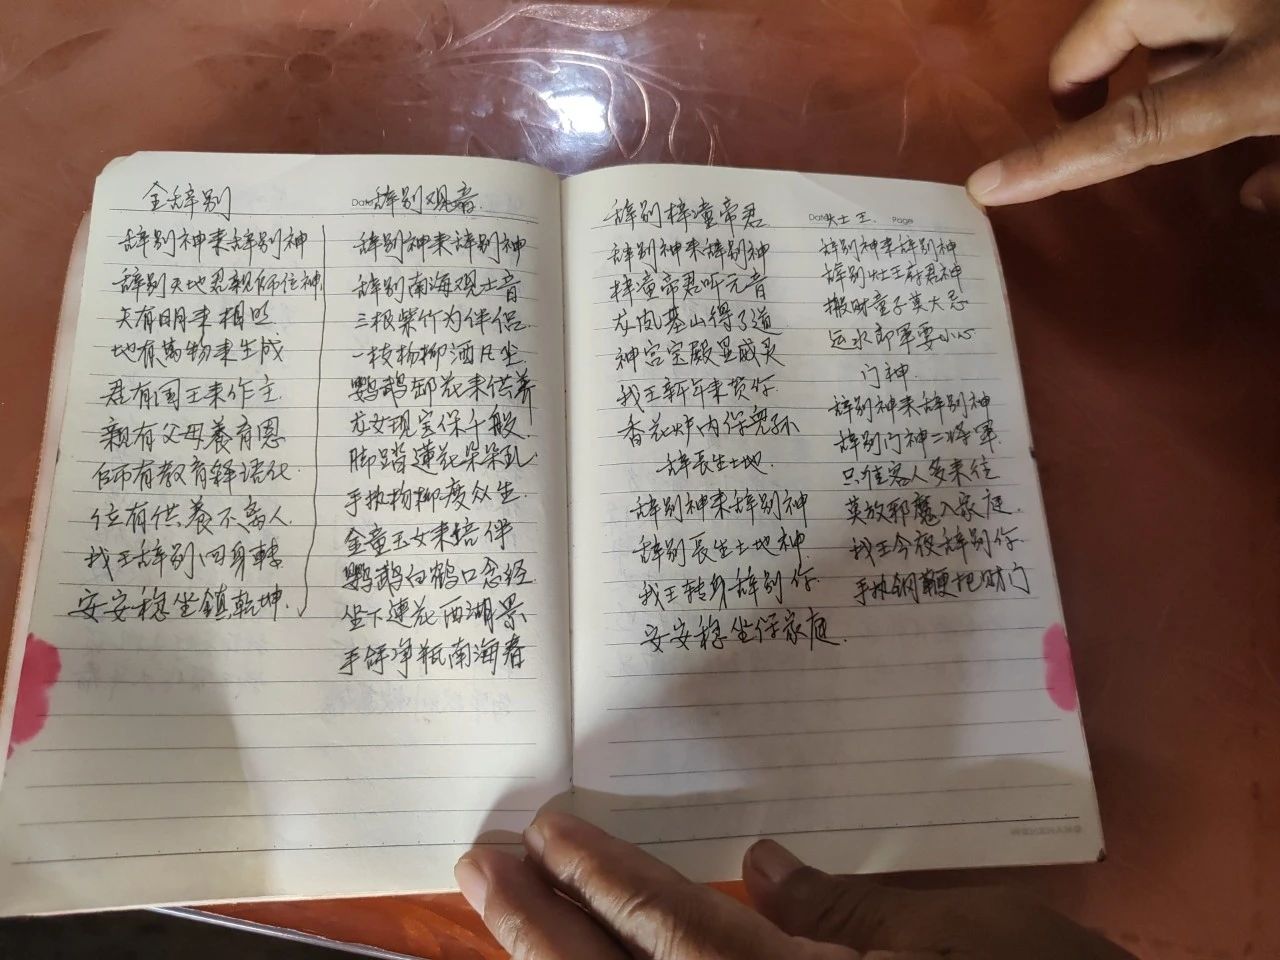 全辞别
辞别神来辞别神
辞别天地君亲师位神
天有日月来相照
地有萬物来生成
君有国王来作主
親有父母養育恩
师有教育释语化
位有供養不离人
我王辞别回身转
安安稳坐鎮乾坤
Date
辞别观音
辞别神来辞别神
辞别南海观士音
三根紫竹为伴侣
一枝杨柳洒凡尘
鹦鹉卸花来供养
龙女现宝保千般
脚踏蓮花朵朵
手执杨柳度众生
金童玉女来培伴
鹦鹉白鹤口念经
坐下蓮花西湖景
手净瓶南海春
辞别梓潼帝君
辞别神来辞别神
梓潼帝君听元音
龙凤基山得了道
神宫宝殿显威灵
我王新年来贺你
香花炉内保儿孙
辞長生土地
辞别神来辞别神
辞别長生土地神
我王转身辞别你
安安稳坐保家庭
Date
灶王
Page
辞别神来辞别神
辞别灶王府君神
搬财童子莫大忌
运水郎军要小心
门神
辞别神来辞别神
辞别门神二将軍
只准客人多来往
莫放邪魔入家庭
我王今夜辞别你
手执钢鞭把财门